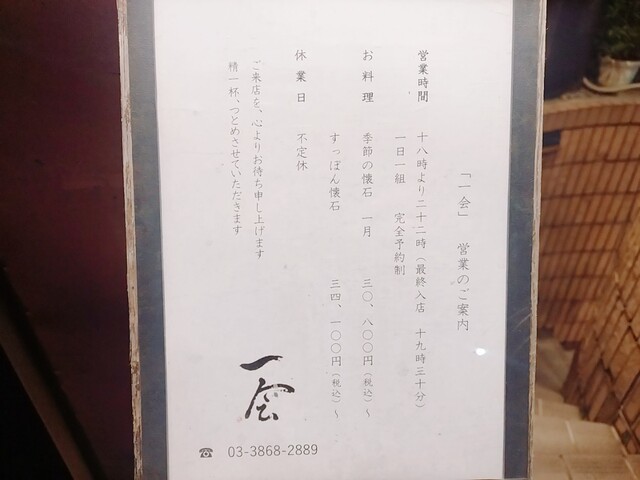 「一会」 営業のご案内
営業時間 十八時より二十二時(最終入店 十九時三十分)
一日一組 完全予約制
お料理 季節の懐石 一月 三〇、八〇〇円(税込)〜
すっぽん懐石 三四、一〇〇円(税込)〜
休業日 不定休
ご来店を、心よりお待ち申し上げます
精一杯、つとめさせていただきます
一会
☎ 03-3868-2889